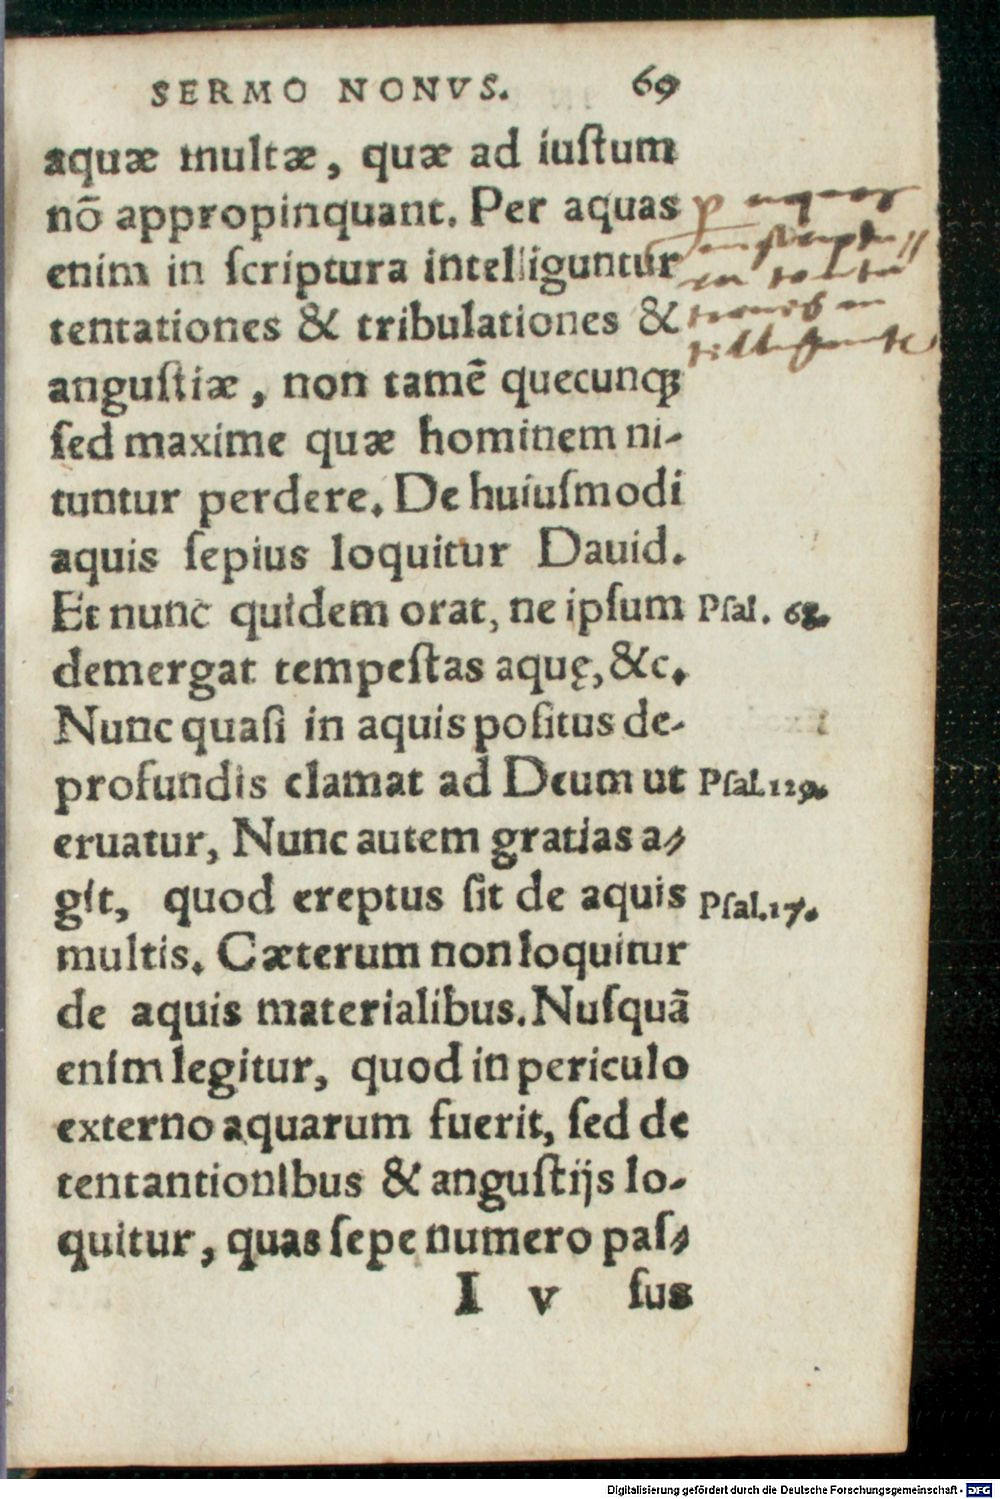 SERMO NONVS. 69
aquæ multæ, quæ ad iuſtum
nõ appropinquant. Per aquas
enim in ſcriptura intelliguntur
tentationes & tribulationes &
anguſtiæ, non tamẽ quecunqꝫ
ſed maxime quæ hominem ni-
tuntur perdere. De huiuſmodi
aquis ſepius loquitur Dauid.
Et nunc quidem orat, ne ipſum Pſal. 68.
demergat tempeſtas aquę, &c.
Nunc quaſi in aquis poſitus de-
profundis clamat ad Deum ut Pſal.129.
eruatur, Nunc autem gratias a-
git, quod ereptus ſit de aquis Pſal.17.
multis. Cæterum non loquitur
de aquis materialibus. Nuſquã
enim legitur, quod in periculo
externo aquarum fuerit, ſed de
tentantionibus & anguſtijs lo-
quitur, quas ſepe numero paſ-
I v ſus
Digitalisierung gefördert durch die Deutsche Forschungsgemeinschaft - DFG